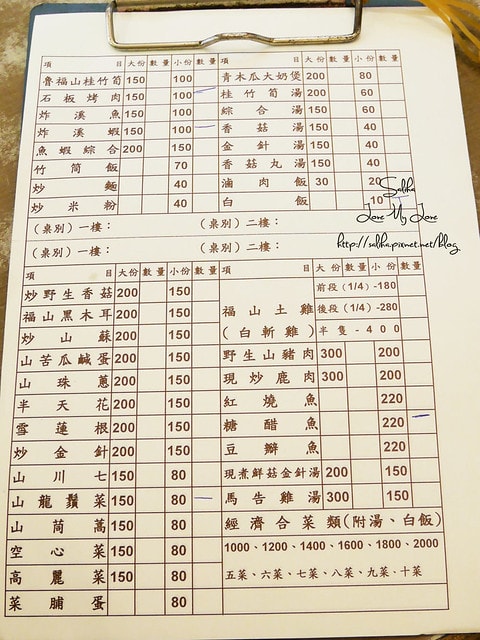 項 目 大份 數量 小份 數量 項 目 大份 數量 小份 數量
魯福山桂竹筍 150 100 青木瓜大奶煲 200 80
石板烤肉 150 100 桂竹筍湯 200 60
炸溪魚 150 100 綜合湯 150 60
炸溪蝦 150 100 香菇湯 150 40
魚蝦綜合 200 150 金針湯 150 40
竹筒飯 70 香菇丸湯 150 40
炒麵 40 滷肉飯 30 20
炒米粉 40 白飯 10
(桌別)一樓: (桌別)二樓:
(桌別)一樓: (桌別)二樓:
Saliha
Love My Love
http://saliha.pixnet.net/blog
項 目 大份 數量 小份 數量 項 目 大份 數量 小份 數量
炒野生香菇 200 150 前段(1/4)-180
福山黑木耳 200 150 福山土雞 後段(1/4)-280
炒山蘇 200 150 (白斬雞) 半隻-400
山苦瓜鹹蛋 200 150 野生山豬肉 300 200
山珠蔥 200 150 現炒鹿肉 300 200
半天花 200 150 紅燒魚 220
雪蓮根 200 150 糖醋魚 220
炒金針 200 150 豆瓣魚 220
山川七 150 80 現煮鮮菇金針湯 200 150
山龍鬚菜 150 80 馬告雞湯 300 150
山茼蒿 150 80 經濟合菜類(附湯、白飯)
空心菜 150 80 1000、1200、1400、1600、1800、2000
高麗菜 150 80 五菜、六菜、七菜、八菜、九菜、十菜
菜脯蛋 80